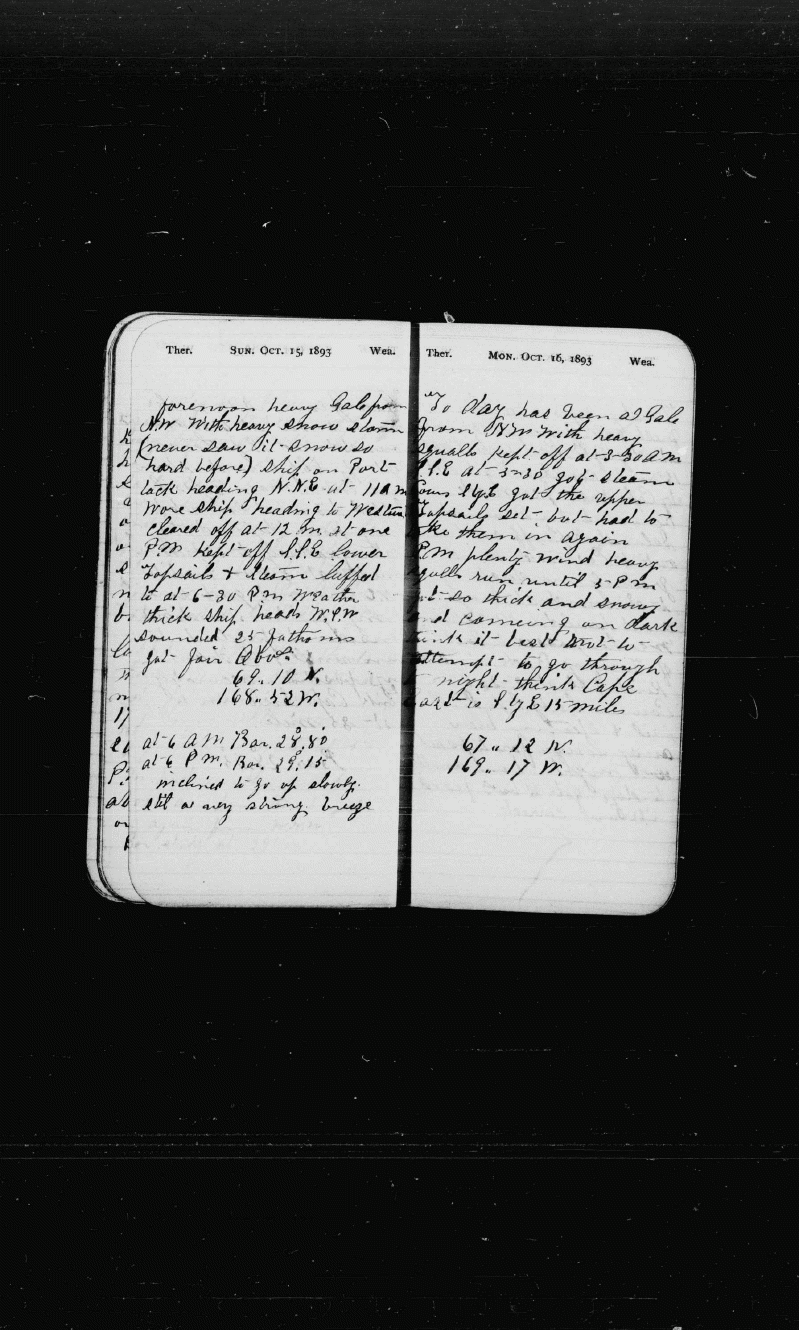 Ther. SUN. OCT. 15, 1893 Wea.
forenoon heavy Gale from
N.W With heavy snow storm
(never saw it snow so
hard before) ship on Port
tack heading N.N.E at 11 a m
Wore ship heading to Westward
cleared off at 12 m. at one
P.M Kept off S.S.E lower
Topsails + steam luffed
to at 6-30 P m Weather
thick ship heads W.S.W
sounded 25 fathoms
got fair Obvs.
69.. 10 N.
168.. 52 W.
at 6 A M Bar. 28.80
at 6 P M. Bar. 29.15
inclined to go up slowly
still a very strong breeze
Ther. MON. OCT. 16, 1893 Wea.
To day has been a Gale
from N.W With heavy
squalls Kept off at 3-30 A M
S.S.E at 3-30 got steam
got the upper
Topsails set but had to
them in again
P.M plenty wind heavy
run until 5 P m
so thick and snowy
and comeing on dark
think it best not to
attempt to go through
night think Cape
is S. by E 15 miles
67.. 12 N.
169.. 17 W.